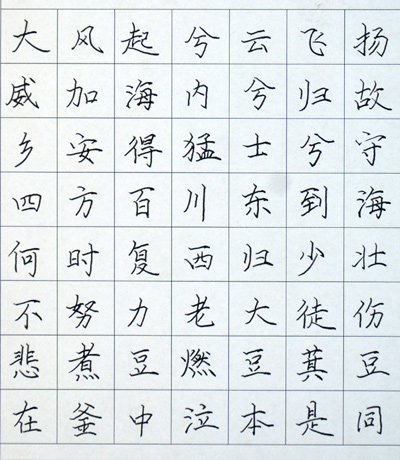 大风起兮云飞扬
威加海内兮归故
乡安得猛士兮守
四方百川东到海
何时复西归少壮
不努力老大徒伤
悲煮豆燃豆萁豆
在釜中泣本是同